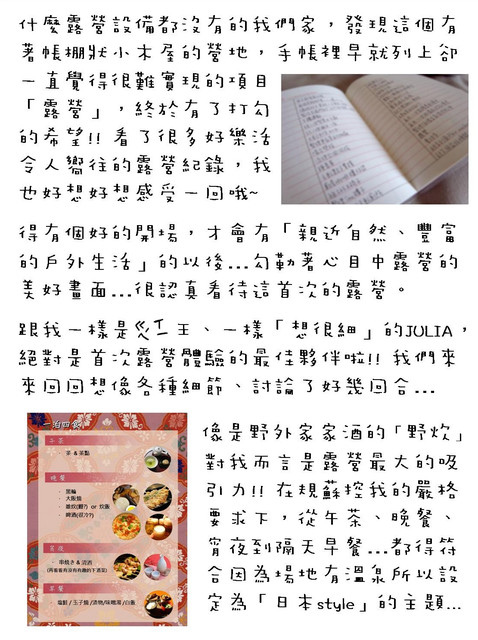 什麼露營設備都沒有的我們家，發現這個有
著帳棚狀小木屋的營地，手帳裡早就列上卻
一直覺得很難實現的項目
「露營」，終於有了打勾
的希望!! 看了很多好樂活
令人嚮往的露營紀錄，我
也好想好想感受一回哦~
得有個好的開場，才會有「親近自然、豐富
的戶外生活」的以後...勾勒著心目中露營的
美好畫面...很認真看待這首次的露營。
跟我一樣是ㄍㄧㄥ王、一樣「想很細」的JULIA，
絕對是首次露營體驗的最佳夥伴啦!! 我們來
來回回想像各種細節、討論了好幾回合...
一泊四食
午茶
茶 & 茶點
晚餐
黑輪
大阪燒
雜炊(粥?) or 炊飯
啤酒(很冷?)
宵夜
串燒き & 清酒
早餐
鮭鮭 / 玉子燒 / 漬物/味噌湯 / 白飯
像是野外家家酒的「野炊」
對我而言是露營最大的吸
引力!! 在規蘇控我的嚴格
要求下，從午茶、晚餐、
宵夜到隔天早餐...都得符
合因為場地有溫泉所以設
定為「日本style」的主題...